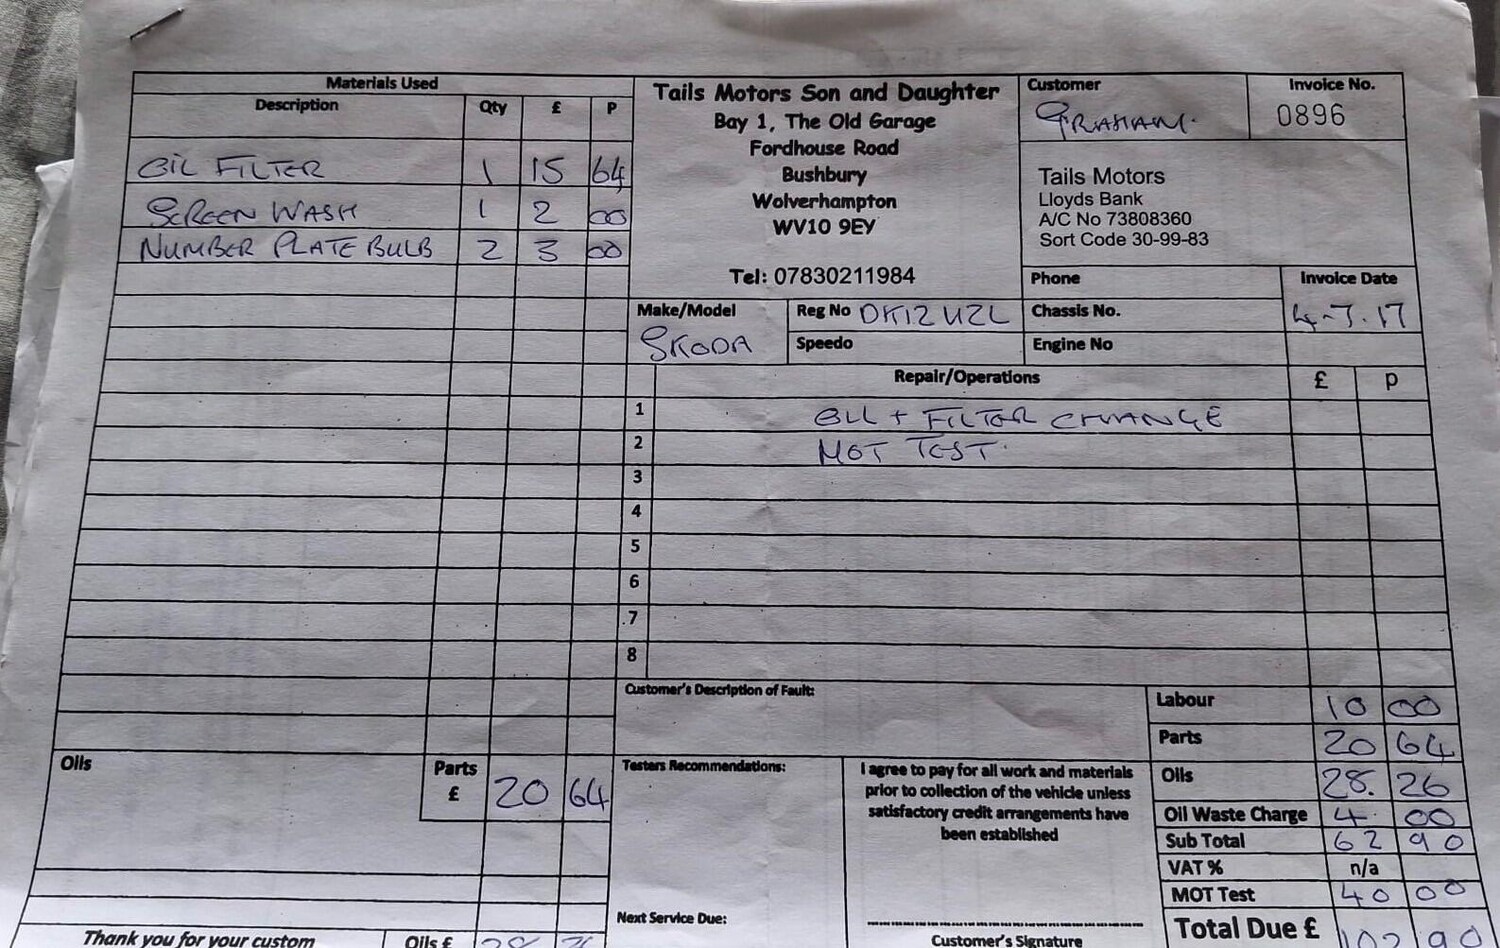 Materials Used
Description Qty £ P
OIL FILTER 1 15 64
SCREEN WASH 1 2 00
NUMBER PLATE BULB 2 3 00
Tails Motors Son and Daughter
Bay 1, The Old Garage
Fordhouse Road
Bushbury
Wolverhampton
WV10 9EY
Tel: 07830211984
Customer
GRAHAM.
Invoice No.
0896
Tails Motors
Lloyds Bank
A/C No 73808360
Sort Code 30-99-83
Phone
Invoice Date
4-7.17
Make/Model
SKODA
Reg No DK12UZL
Speedo
Chassis No.
Engine No
Repair/Operations £ p
1 OIL + FILTER CHANGE
2 MOT TEST.
3
4
5
6
7
8
Customer's Description of Fault:
Labour 10 00
Parts 20 64
Oils 28. 26
Oil Waste Charge 4. 00
Sub Total 62 90
VAT % n/a
MOT Test 40 00
Total Due £ 102 90
Oils
Parts £ 20 64
Testers Recommendations:
I agree to pay for all work and materials
prior to collection of the vehicle unless
satisfactory credit arrangements have
been established
Next Service Due:
Customer's Signature
Thank you for your custom
Oils £ 28 26